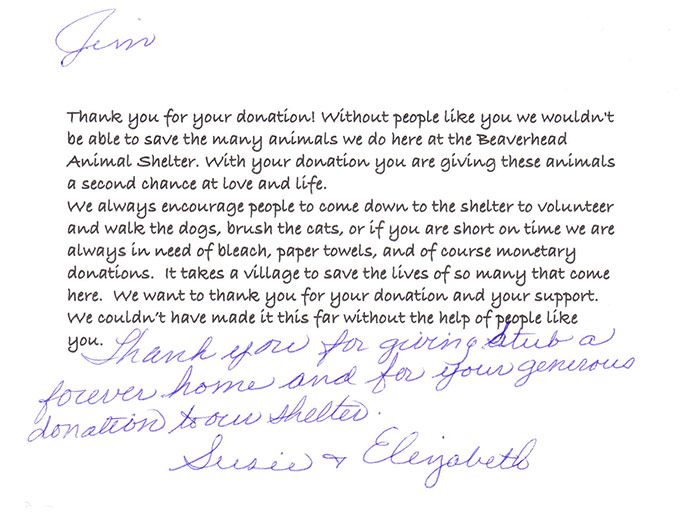 Jim
Thank you for your donation! Without people like you we wouldn't
be able to save the many animals we do here at the Beaverhead
Animal Shelter. With your donation you are giving these animals
a second chance at love and life.
We always encourage people to come down to the shelter to volunteer
and walk the dogs, brush the cats, or if you are short on time we are
always in need of bleach, paper towels, and of course monetary
donations. It takes a village to save the lives of so many that come
here. We want to thank you for your donation and your support.
We couldn't have made it this far without the help of people like
you. Thank you for giving Stub a
forever home and for your generous
donation to our shelter.
Susie + Elizabeth